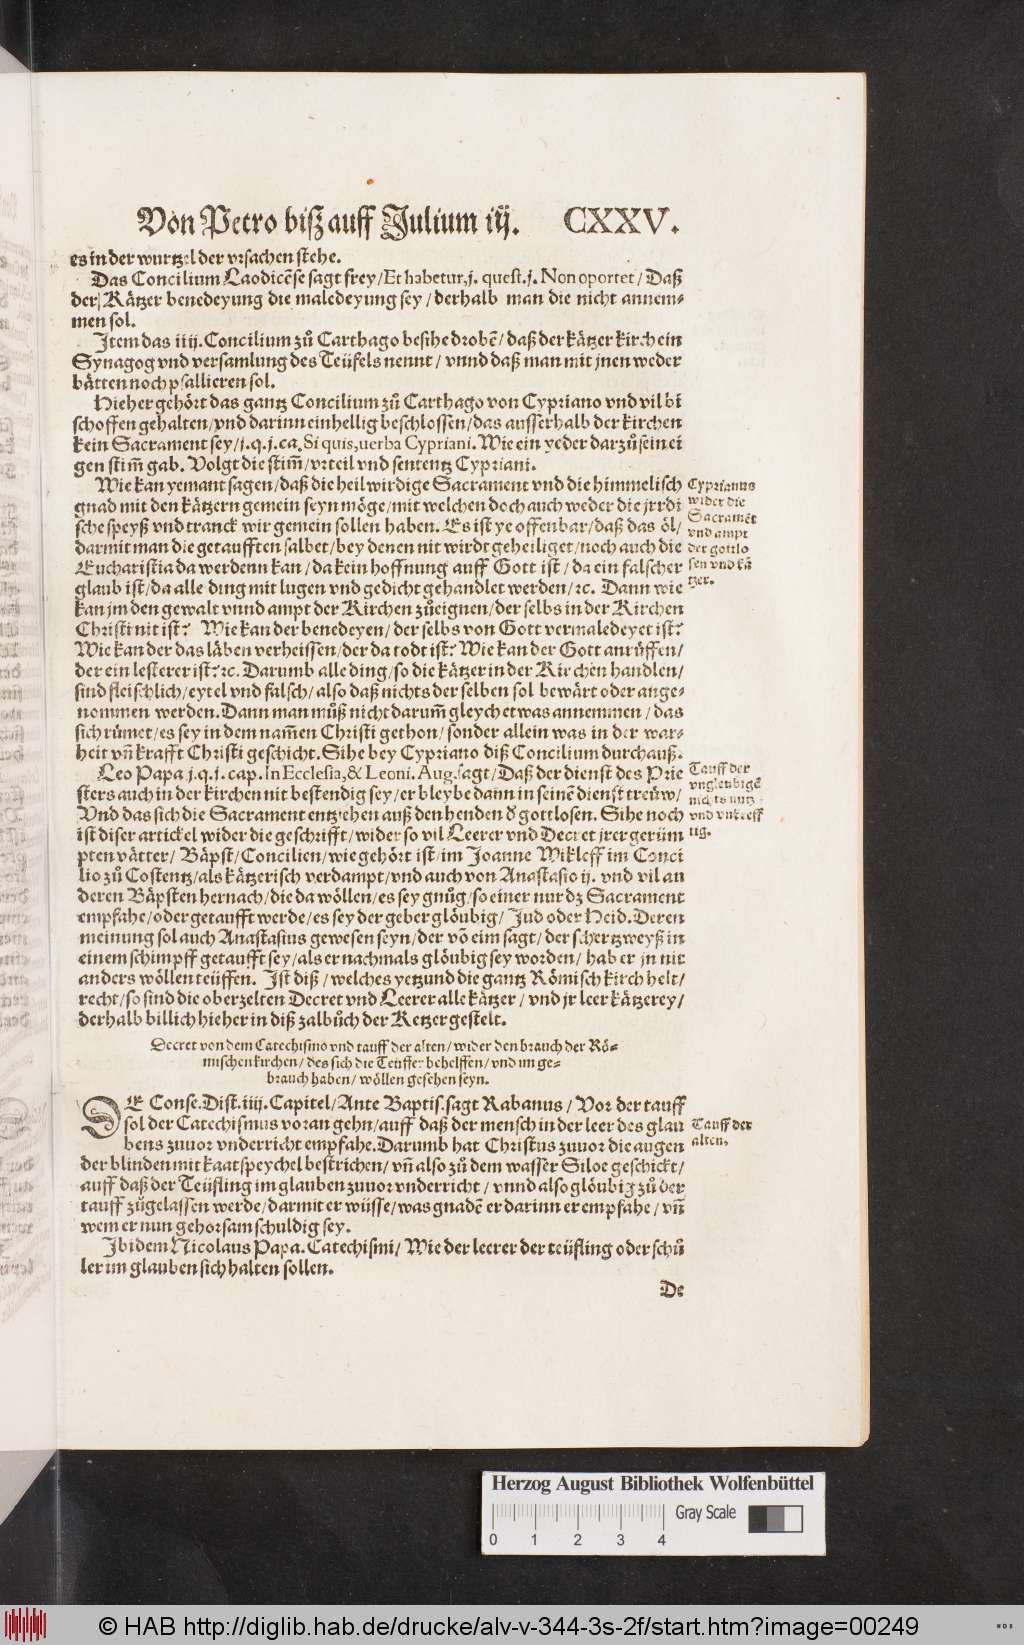 Von Petro biß auff Julium iij. CXXV.
es in der wurtzel der vrsachen stehe.
Das Concilium Laodicēse sagt frey/Et habetur,j. quest.j. Non oportet/Daß
der Kätzer benedeyung die maledeyung sey/derhalb man die nicht annem-
men sol.
Jtem das iiij. Concilium zů Carthago besihe drobē/daß der kätzer kirch ein
Synagog vnd versamlung des Teüfels nennt/vnnd daß man mit jnen weder
bätten noch psallieren sol.
Hieher gehört das gantz Concilium zů Carthago von Cypriano vnd vil bi
schoffen gehalten/vnd darinn einhellig beschlossen/das ausserhalb der kirchen
kein Sacrament sey/j.q.j.ca.Si quis,uerba Cypriani.Wie ein yeder darzů sein ei
gen stim̃ gab. Volgt die stim̃/vrteil vnd sententz Cypriani.
Wie kan yemant sagen/daß die heilwirdige Sacrament vnd die himmelisch
gnad mit den kätzern gemein seyn möge/mit welchen doch auch weder die jrrdi
sche speyß vnd tranck wir gemein sollen haben. Es ist ye offenbar/daß das öl/
darmit man die getaufften salbet/bey denen nit wirdt geheiliget/noch auch die
Eucharistia da werdenn kan/da kein hoffnung auff Gott ist/da ein falscher
glaub ist/da alle ding mit lugen vnd gedicht gehandlet werden/ꝛc. Dann wie
kan jm den gewalt vnnd ampt der Kirchen zůeignen/der selbs in der Kirchen
Christi nit ist? Wie kan der benedeyen/der selbs von Gott vermaledeyet ist?
Wie kan der das läben verheissen/der da todt ist? Wie kan der Gott anrůffen/
der ein lesterer ist?ꝛc. Darumb alle ding/so die kätzer in der Kirchen handlen/
sind fleischlich/eytel vnd falsch/also daß nichts der selben sol bewärt oder ange-
nommen werden.Dann man můß nicht darum̃ gleych etwas annemmen/das
sich růmet/es sey in dem nam̃en Christi gethon/sonder allein was in der war-
heit vñ krafft Christi geschicht. Sihe bey Cypriano diß Concilium durchauß.
Cyprianus
wider die
Sacramēt
vnd ampt
der gottlo
sen vnd kä
tzer.
Leo Papa j.q.j.cap.In Ecclesia,& Leoni.Aug.sagt/Daß der dienst des Prie
sters auch in der kirchen nit bestendig sey/er bleybe dann in seinē dienst treüw/
Vnd das sich die Sacrament entziehen auß den henden ď gottlosen. Sihe noch
ist diser artickel wider die geschrifft/wider so vil Leerer vnd Decret jrer gerüm
pten vätter/Bäpst/Concilien/wie gehört ist/im Joanne Wikleff im Conci
lio zů Costentz/als kätzerisch verdampt/vnd auch von Anastasio ij. vnd vil an
deren Bäpsten hernach/die da wöllen/es sey gnůg/so einer nur dz Sacrament
empfahe/oder getaufft werde/es sey der geber glöubig/Jud oder Heid.Deren
meinung sol auch Anastasius gewesen seyn/der võ eim sagt/der schertzweyß in
einem schimpff getaufft sey/als er nachmals glöubig sey worden/hab er jn nit
anders wöllen teüffen. Jst diß/welches yetzund die gantz Römisch kirch helt/
recht/so sind die oberzelten Decret vnd Leerer alle kätzer/vnd jr leer kätzerey/
derhalb billich hieher in diß zalbůch der Ketzer gestelt.
Tauff der
vngleubigē
nichts nutz
vnd vnkreff
tig.
Decret von dem Catechismo vnd tauff der alten/wider den brauch der Rö-
mischen kirchen/des sich die Teuffer behelffen/vnd im ge-
brauch haben/wöllen gesehen seyn.
DE Conse.Dist.iiij.Capitel/Ante Baptis.sagt Rabanus/Vor der tauff
sol der Catechismus voran gehn/auff daß der mensch in der leer des glau
bens zuuor vnderricht empfahe.Darumb hat Christus zuuor die augen
der blinden mit kaat speychel bestrichen/vñ also zů dem wasser Siloe geschickt/
auff daß der Teüfling im glauben zuuor vnderricht/vnnd also glöubig zů der
tauff zůgelassen werde/darmit er wüsse/was gnadē er darinn er empfahe/vñ
wem er nun gehorsam schuldig sey.
Tauff der
alten.
Jbidem Nicolaus Papa.Catechismi/Wie der leerer der teüfling oder schů
ler im glauben sich halten sollen.
De
Herzog August Bibliothek Wolfenbüttel
Gray Scale
0 1 2 3 4
© HAB http://diglib.hab.de/drucke/alv-v-344-3s-2f/start.htm?image=00249